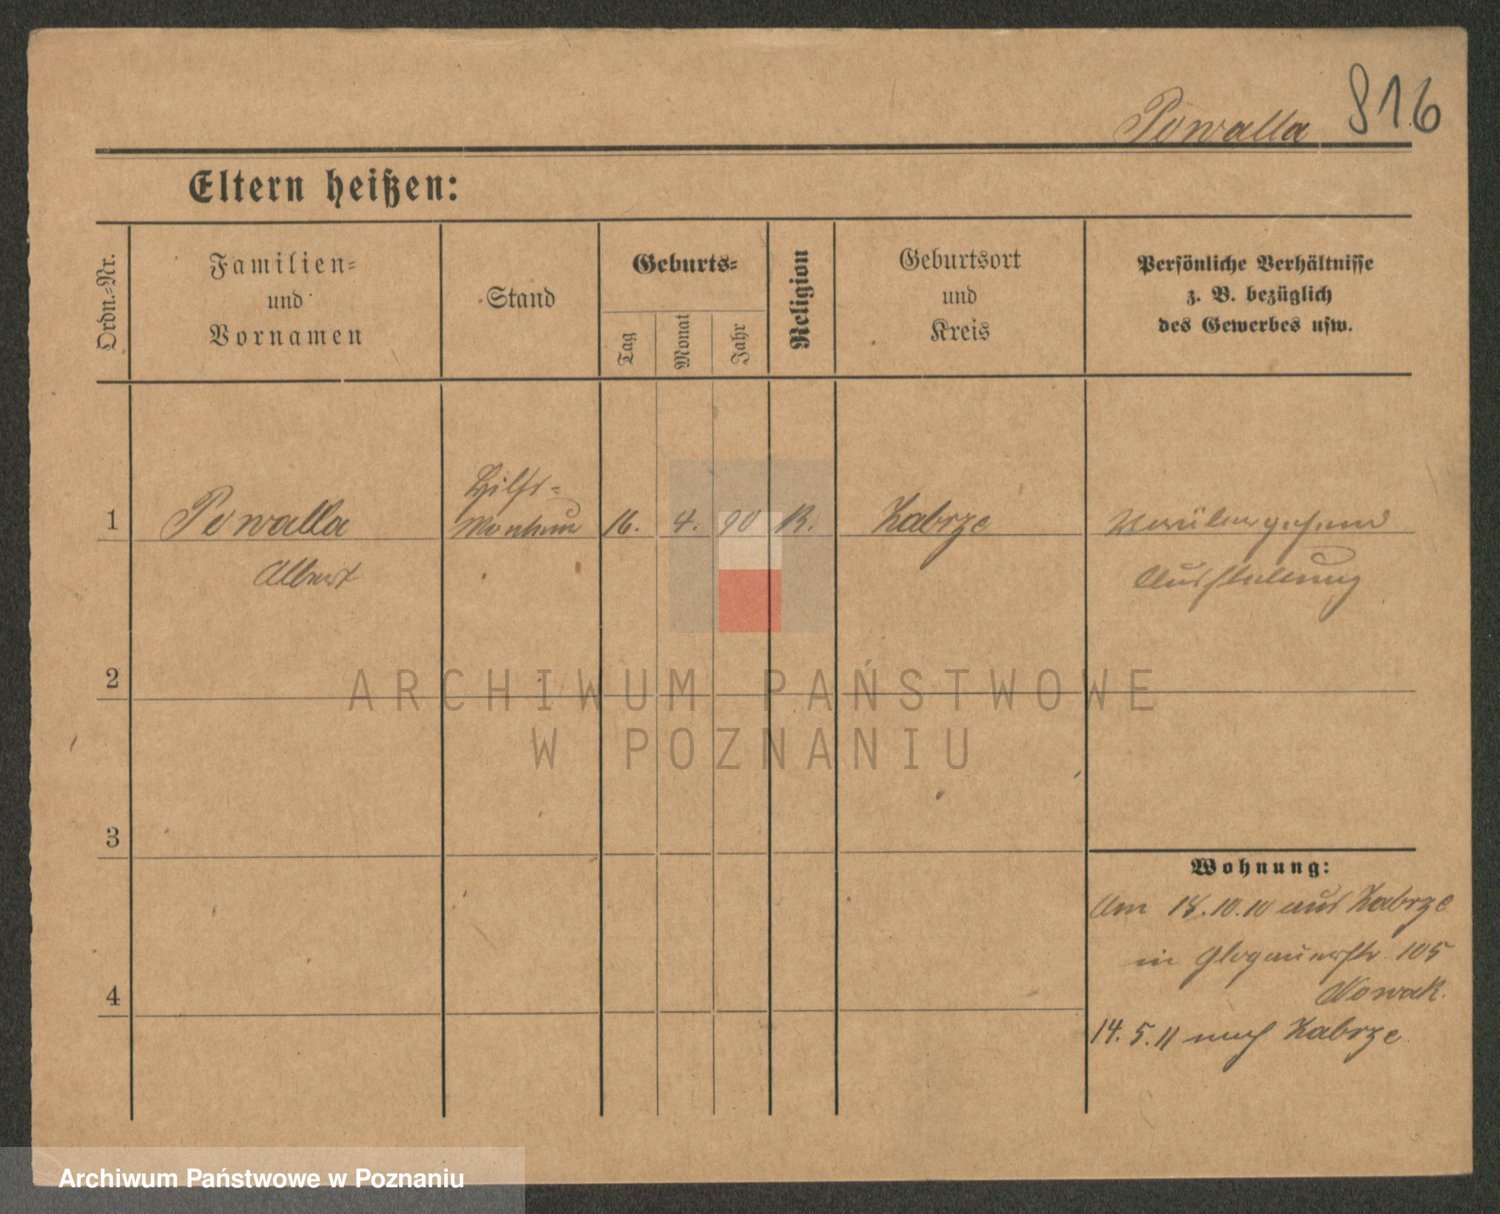 Powalla 816
Eltern heißen:
Ordn.-Nr.
Familien-
und
Vornamen
Stand
Geburts-
Tag
Monat
Jahr
Religion
Geburtsort
und
Kreis
Persönliche Verhältnisse
z. B. bezüglich
des Gewerbes usw.
Hilfs-
1 Powalla Monteur 16. 4. 90 K. Zabrze Vorübergehend
Albert Ausstellung
2
3
4
Wohnung:
Am 18.10.10 aus Zabrze
in Glogauerstr. 105
Nowak.
14.5.11 nach Zabrze
ARCHIWUM PAŃSTWOWE
W POZNANIU
Archiwum Państwowe w Poznaniu